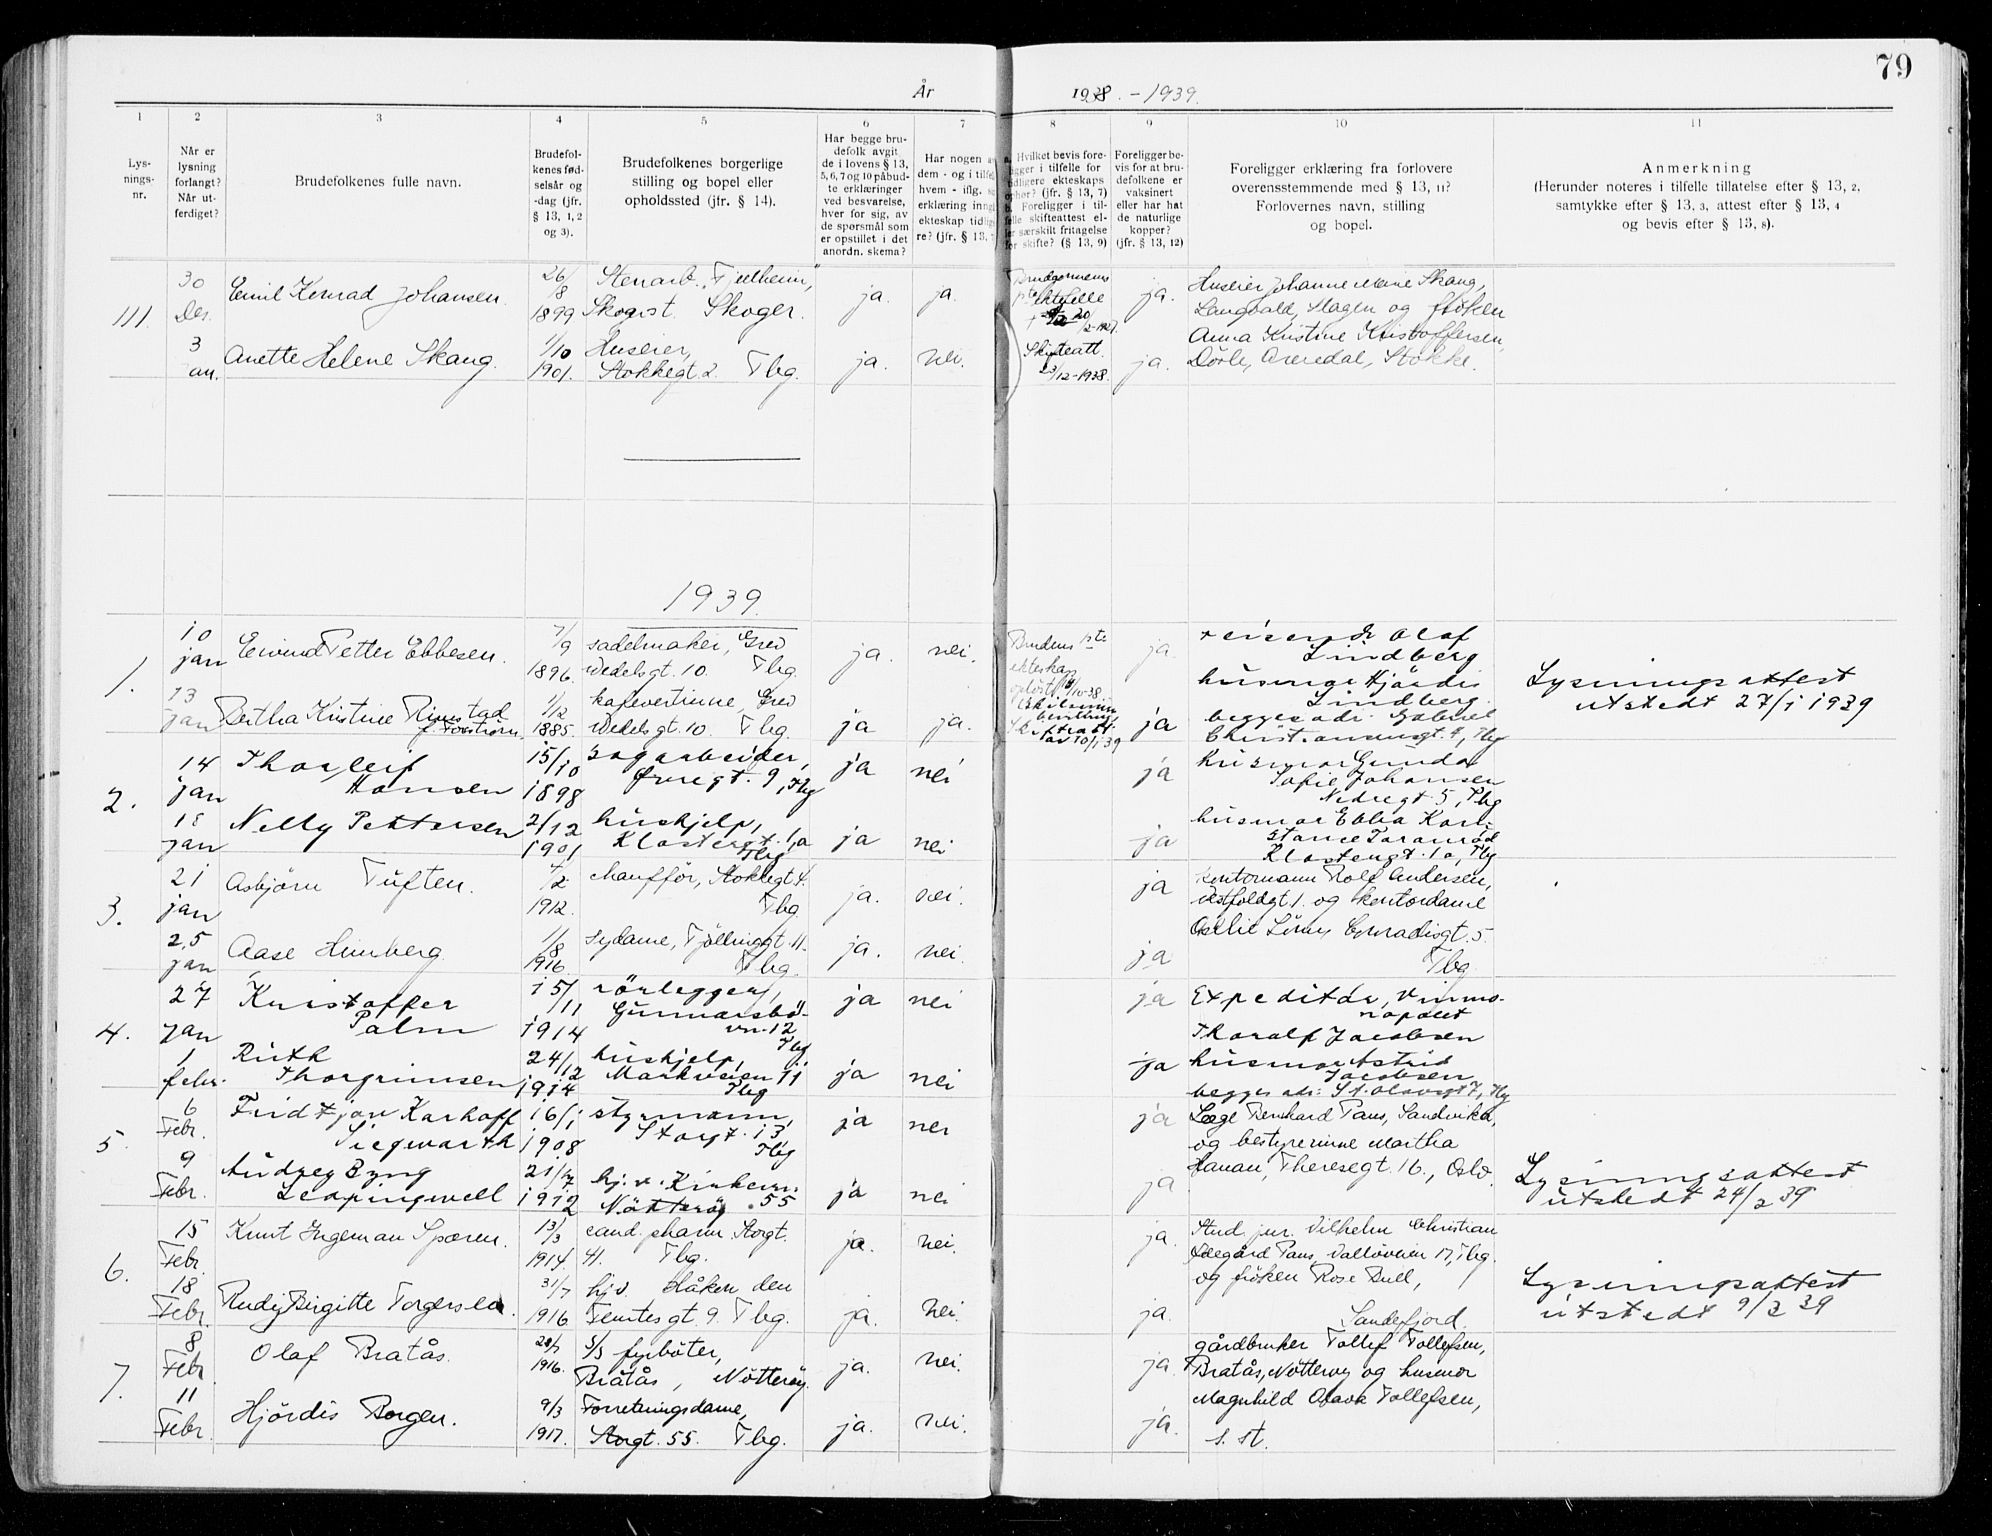 79
År 1938. - 1939.
1 2 3 4 5 6 7 8 9 10 11
Lys-
nings-
nr.
Når er
lysning
forlangt?
Når ut-
ferdiget?
Brudefolkenes fulle navn.
Brudefol-
kenes fød-
selsår og
-dag (jfr.
§ 13, 1, 2
og 3).
Brudefolkenes borgerlige
stilling og bopel eller
opholdssted (jfr. § 14).
Har begge bru-
defolk avgit
de i lovens § 13,
5, 6, 7 og 10 påbud-
te erklæringer
ved besvarelse,
hver for sig, av
de spørsmål som
er opstillet i det
anordn. skema?
Har nogen a
dem - og i tilfel
hvem - iflg.
erklæring inng
ekteskap tidlig
re? (jfr. § 13,
a. Hvilket bevis fore-
ligger i tilfelle for
tidligere ekteskaps
ophør? (jfr. § 13, 7)
b. Foreligger i til-
felle skifteattest el-
ler særskilt fritagelse
for skifte? (§ 13, 9)
Foreligger be-
vis for at bru-
defolkene er
vaksinert
eller har hat
de naturlige
kopper?
(jfr. § 13, 12)
Foreligger erklæring fra forlovere
overensstemmende med § 13, 11?
Forlovernes navn, stilling
og bopel.
Anmerkning
(Herunder noteres i tilfelle tillatelse efter § 13, 2,
samtykke efter § 13, 3, attest efter § 13, 4
og bevis efter § 13, 8).
111.
30
Des.
Emil Konrad Johansen.
26/8
1899
Stenarb. "Fjellheim,"
Skogst. Skoger.
ja. ja.
Brudgommens
1ste ektefelle
20/2-1927.
Skifteatt.
23/12-1938.
ja.
Huseier Johanne Marie Skaug,
Langvald, Slagen og frøken
Anna Kristine Kristoffersen,
Dørle, Arendal, Stokke.
3
an.
Anette Helene Skaug.
1/10
1901.
Huseier,
Stokkegt. 2. Tbg.
ja. nei. ja.
1939.
1.
10
jan
Eivind Petter Ebbesen.
7/9
1896.
sadelmaker, Grev
Wedelsgt. 10. Tbg.
ja. nei.
Brudens 1ste
ekteskap
opløst
ja.
Olaf
Lindberg
husmor Hjørdis
Lindberg.
begges adr. Gabriel
Christiansensgt. 4, Tbg
Lysningsattest
utstedt 27/1 1939
13
jan
Bertha Kristine Rimstad
1/12
1885.
kafevertinne, Grev
Wedels gt. 10. Tbg.
ja ja.
Skifteatt.
av 10/1 39
ja
2.
14
jan
Thorleif
Hansen
15/10
1898
sagarbeider,
Øvregt. 9, Tbg
ja nei ja
husmor Gunda
Sofie Johansen
Nedregt 5, Tbg
18
jan
Nelly Pettersen
2/12
1901
hushjelp,
Klostergt. 1a
Tbg
ja nei ja
husmor Ebba Kon-
stance Taranrød
Klostergt. 1a, Tbg
3.
21
jan
Asbjørn Tuften.
4/2
1912.
chauffør, Stokkegt 4.
Tbg.
ja. nei. ja
Kontormann Rolf Andersen,
Vestfoldgt 1. og kontordame
Conradisgt. 5.
Tbg.
25
jan
Aase Himberg
1/8
1916.
sydame, Tjøllinggt. 11.
Tbg.
ja. nei. ja
4.
27
jan
Kristoffer
Palm
15/11
1914
rørlegger,
Gunnarsbø-
vn. 12
Tbg
ja nei ja
Expeditør, vinmo-
nopolet
Thoralf Jacobsen
1
febr.
Ruth
Thorgrimsen
24/12
1914
hushjelp,
Markveien 11
Tbg
ja nei ja
husmor Astrid
Jacobsen
begges adr: St. Olavsgt 7, Tbg
5.
6
Febr.
Fridtjov Karhoff
Siegwarth
16/1
1908
styrmann,
Storgt. 13,
Tbg
ja nei ja
Læge Bernhard Paus, Sandvika,
og bestyrerinne Martha
Hanan, Theresegt. 16., Oslo.
Lysningsattest
utstedt 24/2 39
9
Febr.
Audrey Byng
Leapingwell
21/7
1912
hj. v. Kirkevn.
Nøtterøy. 55
ja nei ja
6.
15
Febr.
Knut Ingeman Sparen.
13/3
1914.
cand. pharm. Storgt.
41. Tbg.
ja. nei. ja.
Stud. jur. Vilhelm Christian
Ødegård Paus, Valløveien 17, Tbg.
og frøken Rose Bull,
Sandefjord.
Lysningsattest
utstedt 9/3 39
18
Febr.
Rudy Birgitte Torgersen.
31/7
1916
hjv. Håken den
Femtes gt. 9. Tbg.
ja. nei. ja.
7.
8
Febr.
Olaf Bratås.
1916.
s/s fyrbøter,
Bråtås, Nøtterøy.
ja. nei. ja
gårdbruker Tollef Tollefsen,
Bratås, Nøtterøy og husmor
Magnhild Olava Tollefsen,
s. st.
11
Febr.
Hjørdis Borgen.
9/3
1917.
Forretningsdame,
Storgt. 55. Tbg.
ja. nei. ja.